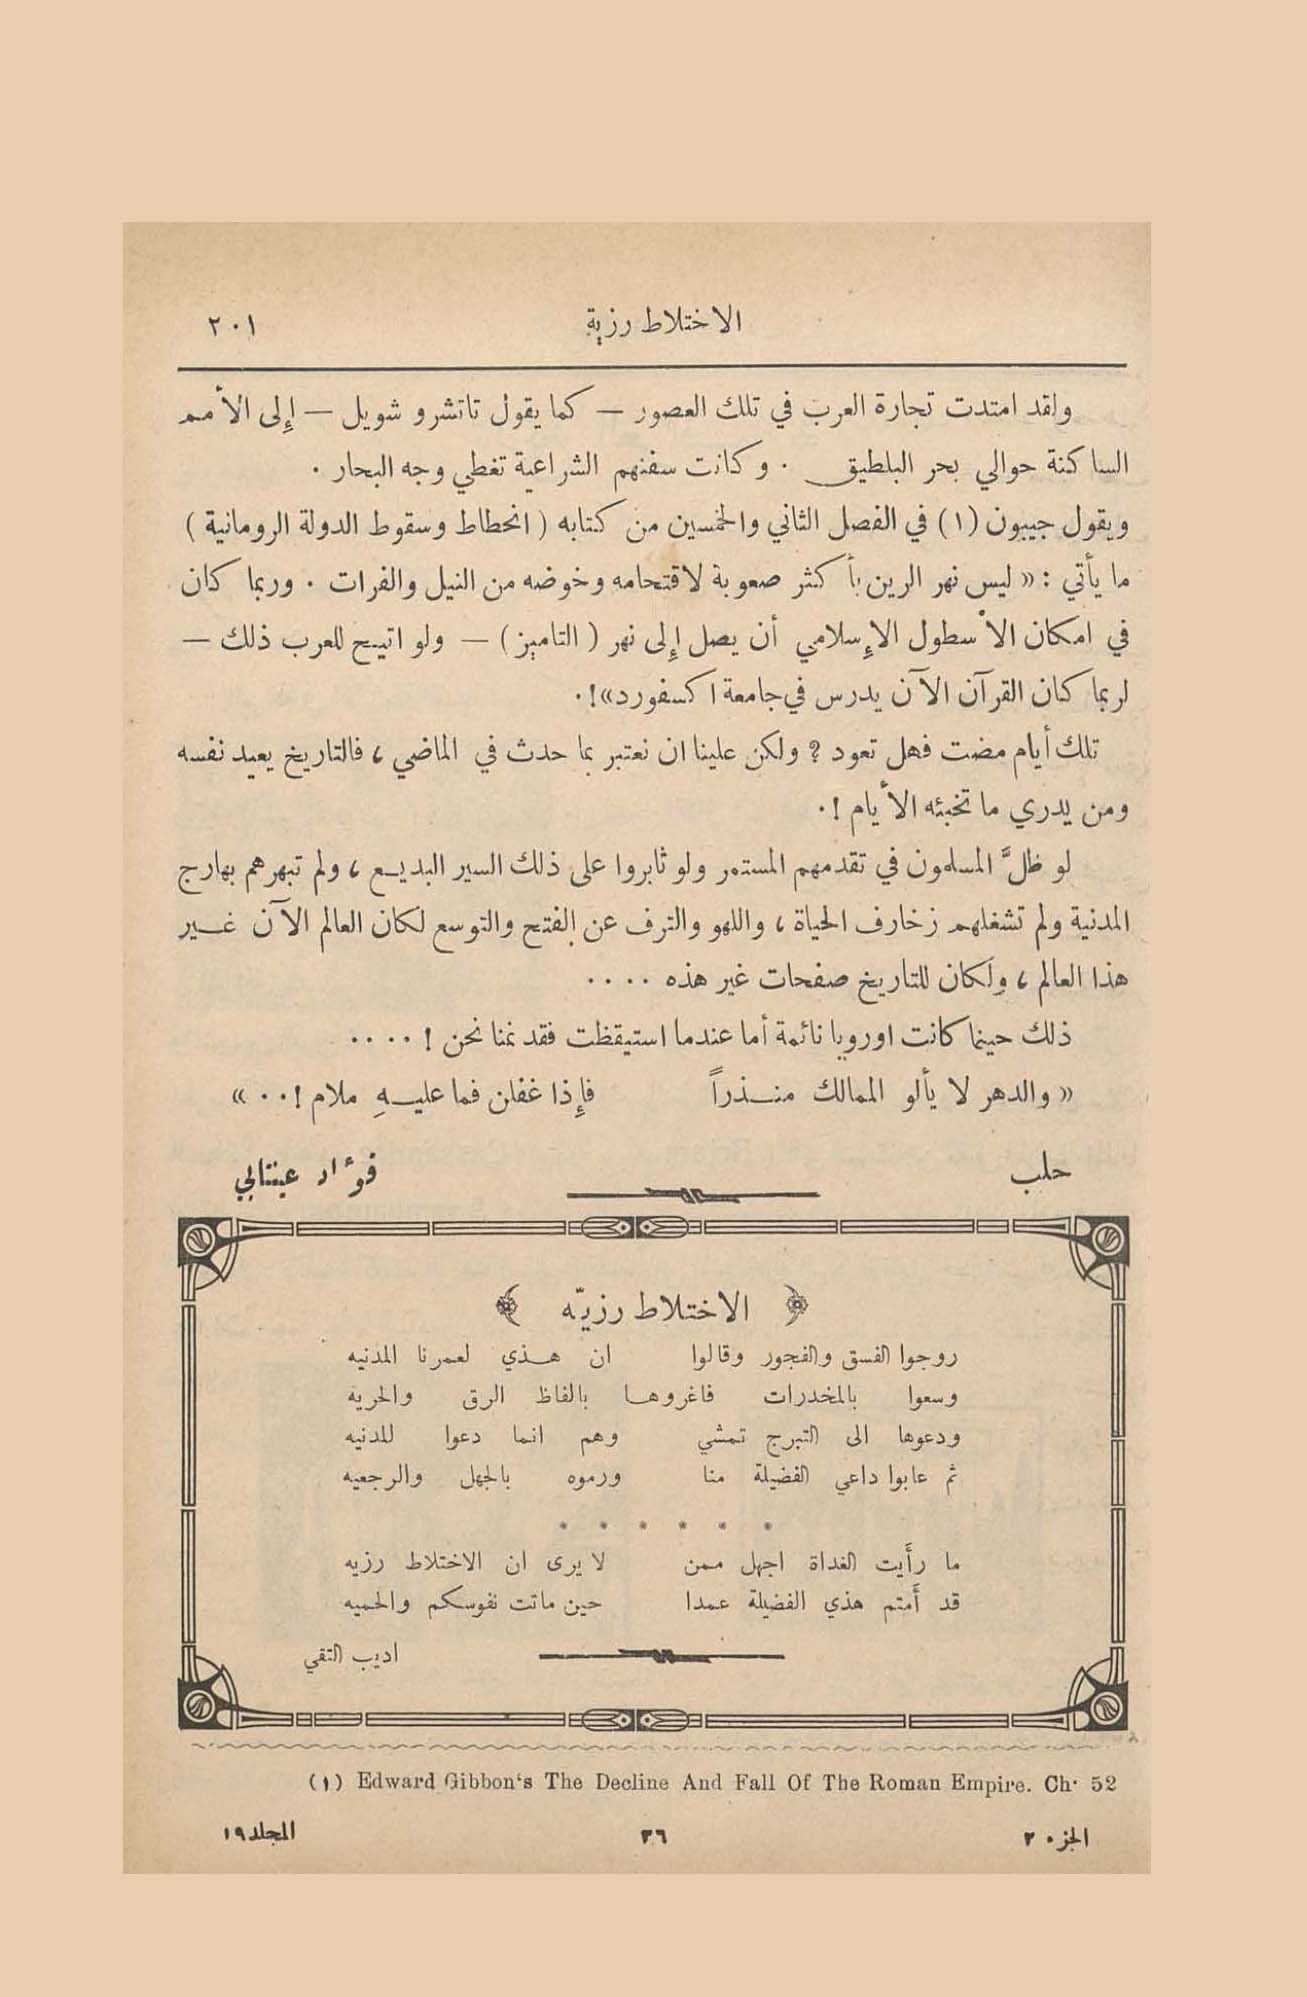 الاختلاط رزية ٢٠١
ولقد امتدت تجارة العرب في تلك العصور — كما يقول تاتشرو شويل — إلى الأمم
الساكنة حوالي بحر البلطيق . وكانت سفنهم الشراعية تغطي وجه البحار .
ويقول جيبون (١) في الفصل الثاني والخمسين من كتابه ( انحطاط وسقوط الدولة الرومانية )
ما يأتي : « ليس نهر الرين بأكثر صعوبة لاقتحامه وخوضه من النيل والفرات . وربما كان
في امكان الأسطول الإسلامي أن يصل إلى نهر ( التاميز ) — ولو اتيح للعرب ذلك —
لربما كان القرآن الآن يدرس في جامعة اكسفورد»!.
تلك أيام مضت فهل تعود ؟ ولكن علينا ان نعتبر بما حدث في الماضي ، فالتاريخ يعيد نفسه
ومن يدري ما تخبئه الأيام !.
لو ظلَّ المسلمون في تقدمهم المستمر ولو ثابروا على ذلك السير البديع ، ولم تبهرهم بهارج
المدنية ولم تشغلهم زخارف الحياة ، واللهو والترف عن الفتح والتوسع لكان العالم الآن غير
هذا العالم ، ولكان للتاريخ صفحات غير هذه ....
ذلك حينما كانت اوروبا نائمة أما عندما استيقظت فقد نمنا نحن ! ....
« والدهر لا يألو الممالك منذراً فإذا غفلن فما عليهِ ملام !.. »
حلب فؤاد عينتابي
الاختلاط رزيّه
روجوا الفسق والفجور وقالوا ان هذي لعمرنا المدنيه
وسعوا بالمخدرات فاغروها بالفاظ الرق والحريه
ودعوها الى التبرج تمشي وهم انما دعوا للدنيه
ثم عابوا داعي الفضيلة منا ورموه بالجهل والرجعيه
* * * * * *
ما رأيت الغداة اجهل ممن لا يرى ان الاختلاط رزيه
قد أمتم هذي الفضيلة عمدا حين ماتت نفوسكم والحميه
اديب التقي
(١) Edward Gibbon's The Decline And Fall Of The Roman Empire. Ch. 52
الجزء ٢ ٢٦ المجلد ١٩